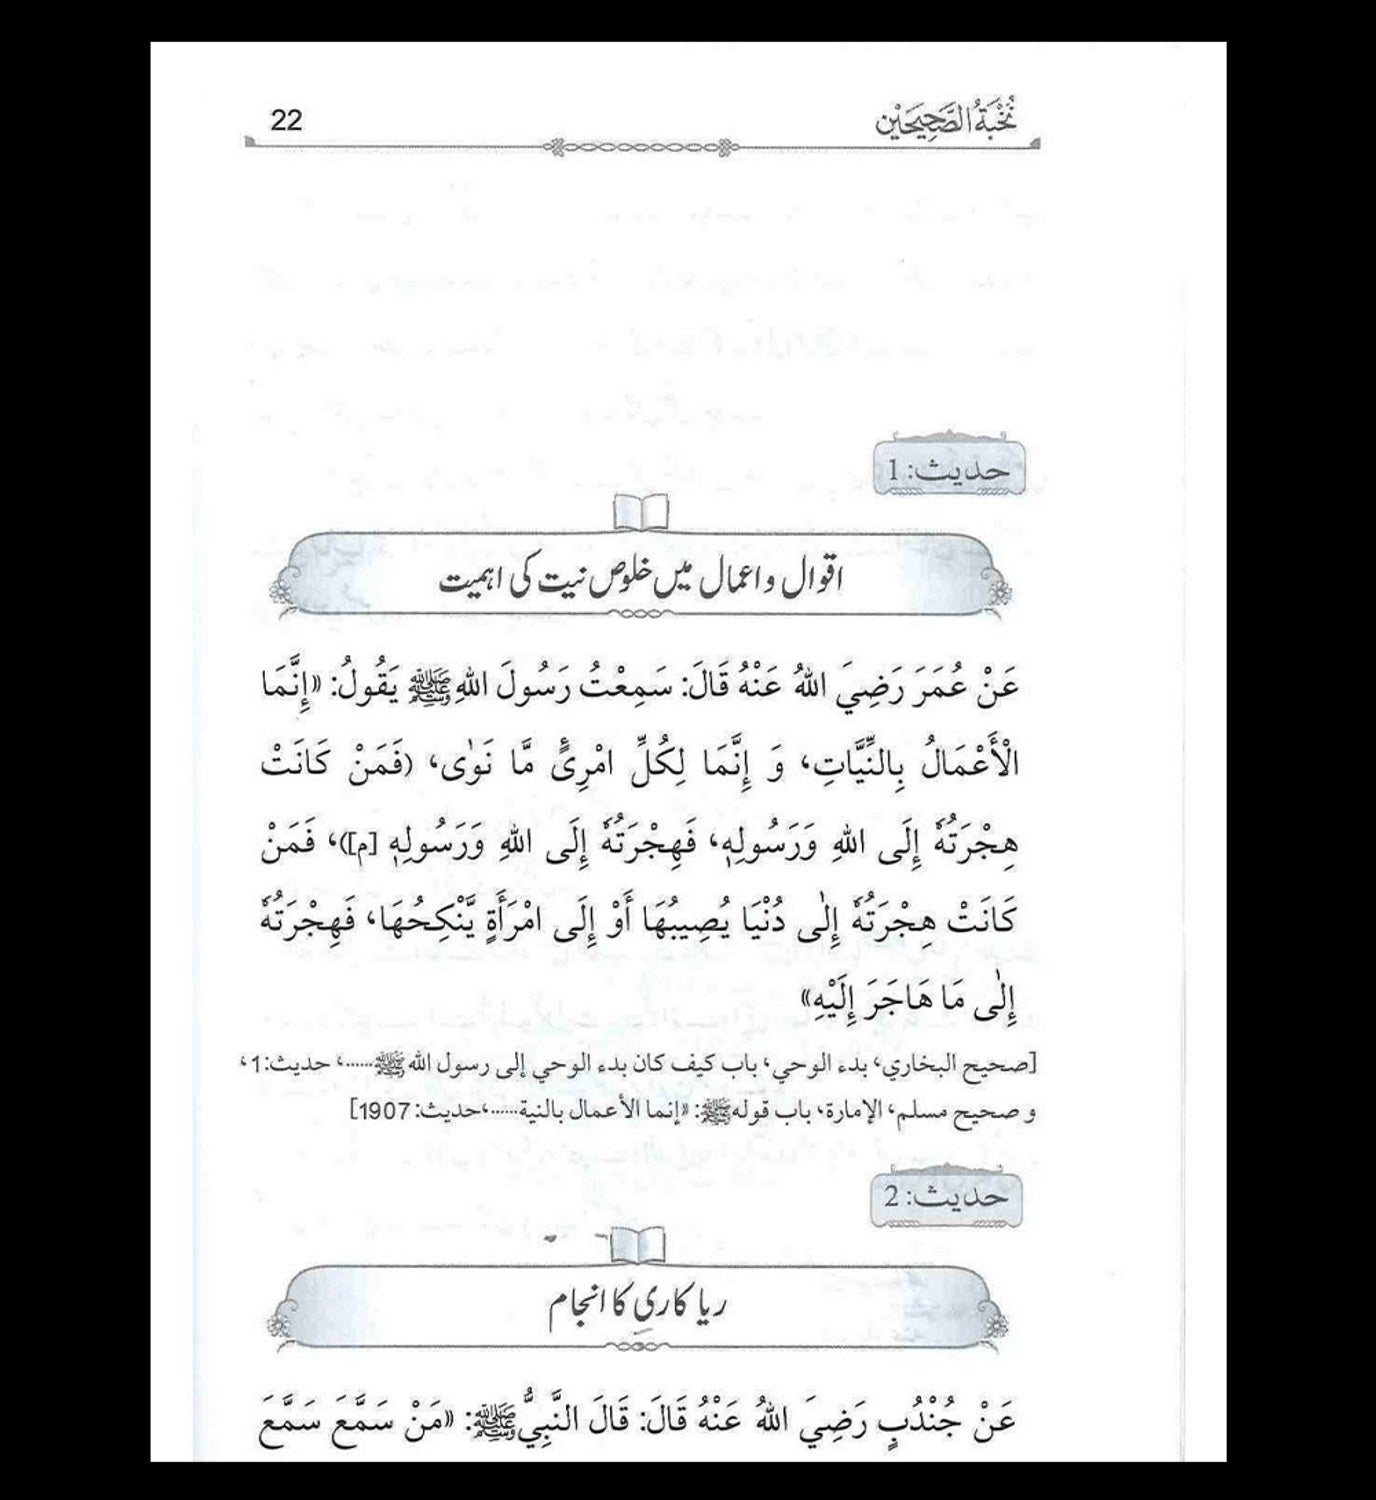 نُخْبَةُ الصَّحِيحَيْن 22
حديث: 1
اقوال و اعمال میں خلوص نیت کی اہمیت
عَنْ عُمَرَ رَضِيَ اللهُ عَنْهُ قَالَ: سَمِعْتُ رَسُولَ اللهِ ﷺ يَقُولُ: «إِنَّمَا
الْأَعْمَالُ بِالنِّيَّاتِ، وَ إِنَّمَا لِكُلِّ امْرِئٍ مَّا نَوٰى، (فَمَنْ كَانَتْ
هِجْرَتُهٗ إِلَى اللهِ وَرَسُولِهٖ، فَهِجْرَتُهٗ إِلَى اللهِ وَرَسُولِهٖ [م])، فَمَنْ
كَانَتْ هِجْرَتُهٗ إِلٰى دُنْيَا يُصِيبُهَا أَوْ إِلَى امْرَأَةٍ يَّنْكِحُهَا، فَهِجْرَتُهٗ
إِلٰى مَا هَاجَرَ إِلَيْهِ»
[صحيح البخاري، بدء الوحي، باب كيف كان بدء الوحي إلى رسول الله ﷺ......، حديث:1،
و صحيح مسلم، الإمارة، باب قوله ﷺ: «إنما الأعمال بالنية......،حديث: 1907]
حديث: 2
ریا کاری کا انجام
عَنْ جُنْدُبٍ رَضِيَ اللهُ عَنْهُ قَالَ: قَالَ النَّبِيُّ ﷺ: «مَنْ سَمَّعَ سَمَّعَ